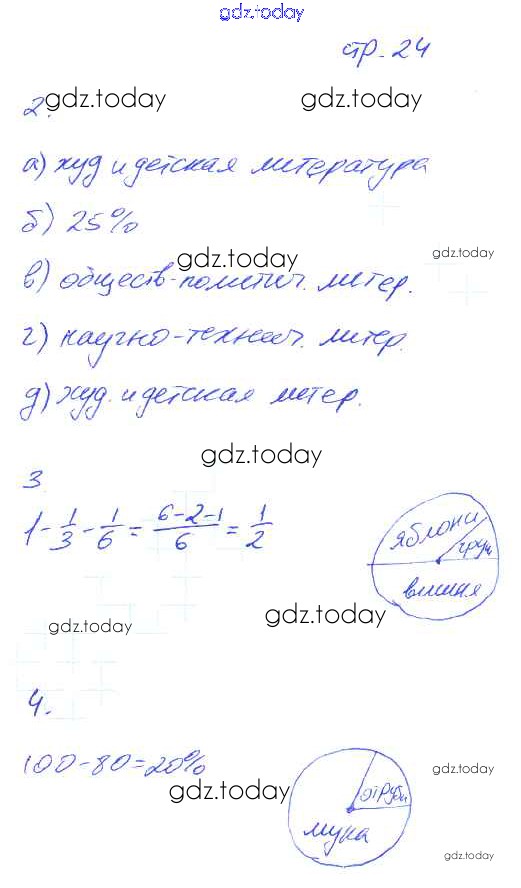 gdz.today
стр. 24
gdz.today gdz.today
2.
а) худ и детская литература
б) 25%
gdz.today gdz.today
в) обществ-политич. литер.
г) научно-технич. литер.
д) худ. и детская литер.
gdz.today
3
1 - 1/3 - 1/6 = (6-2-1)/6 = 1/2
яблони
груши
вишня
gdz.today
gdz.today
4.
100-80=20%
gdz.today
gdz.today
отруби
мука
gdz.today